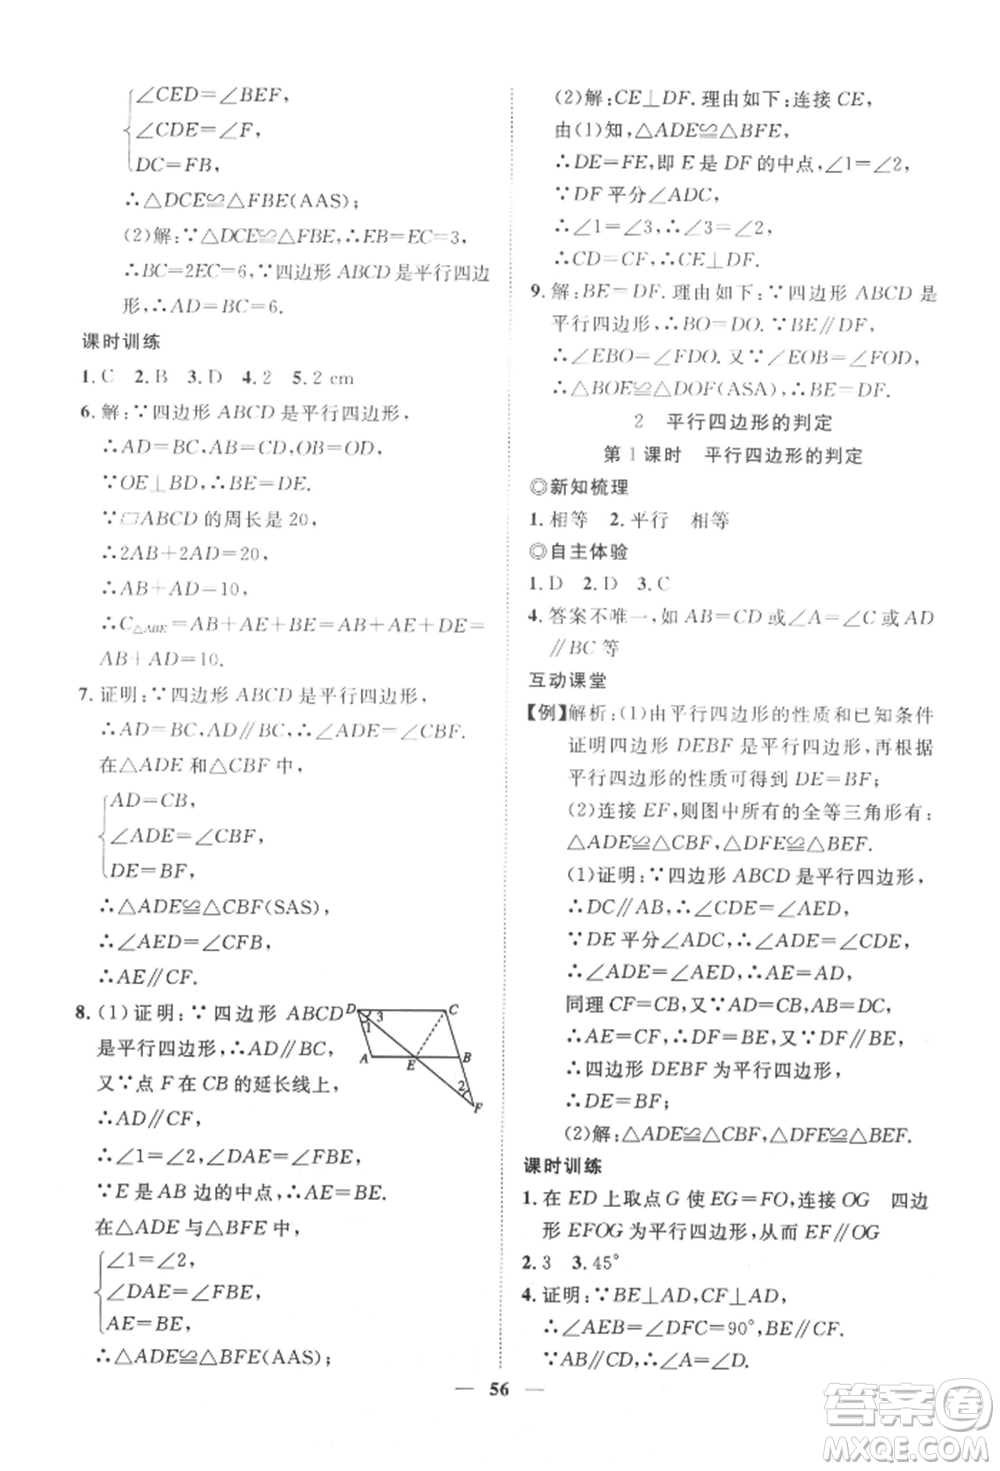 ∠CED=∠BEF,
∠CDE=∠F,
DC=FB,
∴△DCE≌△FBE(AAS);
(2)解:∵△DCE≌△FBE,∴EB=EC=3,
∴BC=2EC=6,∵四边形 ABCD 是平行四边
形,∴AD=BC=6.
课时训练
1.C 2.B 3.D 4.2 5.2 cm
6.解:∵四边形 ABCD 是平行四边形,
∴AD=BC,AB=CD,OB=OD,
∵OE⊥BD,∴BE=DE.
∵▱ABCD 的周长是 20,
∴2AB+2AD=20,
∴AB+AD=10,
∴C△ABE=AB+AE+BE=AB+AE+DE=
AB+AD=10.
7.证明:∵四边形 ABCD 是平行四边形,
∴AD=BC,AD∥BC,∴∠ADE=∠CBF.
在△ADE 和△CBF 中,
AD=CB,
∠ADE=∠CBF,
DE=BF,
∴△ADE≌△CBF(SAS),
∴∠AED=∠CFB,
∴AE∥CF.
8.(1)证明:∵四边形 ABCD
是平行四边形,∴AD∥BC,
又∵点 F 在 CB 的延长线上,
∴AD∥CF,
∴∠1=∠2,
∵E 是 AB 边的中点,∴AE=BE.
在△ADE 与△BFE 中,
∠1=∠2,
∠DAE=∠FBE,
AE=BE,
∴△ADE≌△BFE(AAS);
D
3
C
1
A
E
B
2
F
(2)解:CE⊥DF.理由如下:连接 CE,
由(1)知,△ADE≌△BFE,
∴DE=FE,即 E 是 DF 的中点,∠1=∠2,
∵DF 平分∠ADC,
∴∠1=∠3,∴∠3=∠2,
∴CD=CF,∴CE⊥DF.
9.解:BE=DF.理由如下:∵四边形 ABCD 是
平行四边形,∴BO=DO.∵BE∥DF,
∴∠EBO=∠FDO.又∵∠EOB=∠FOD,
∴△BOE≌△DOF(ASA),∴BE=DF.
2 平行四边形的判定
第 1 课时 平行四边形的判定
◎新知梳理
1.相等 2.平行 相等
◎自主体验
1.D 2.D 3.C
4.答案不唯一,如 AB=CD 或∠A=∠C 或 AD
∥BC 等
互动课堂
【例】解析:(1)由平行四边形的性质和已知条件
证明四边形 DEBF 是平行四边形,再根据
平行四边形的性质可得到 DE=BF;
(2)连接 EF,则图中所有的全等三角形有:
△ADE≌△CBF,△DFE≌△BEF.
(1)证明:∵四边形 ABCD 是平行四边形,
∴DC∥AB,∴∠CDE=∠AED,
∵DE 平分∠ADC,∴∠ADE=∠CDE,
∴∠ADE=∠AED,∴AE=AD,
同理 CF=CB,又 AD=CB,AB=CD,
∴AE=CF,∴DF=BE,又∵DF∥BE,∴
四边形 DEBF 为平行四边形,
∴DE=BF;
(2)解:△ADE≌△CBF,△DFE≌△BEF.
课时训练
1.在 ED 上取点 G 使 EG=FO,连接 OG 四边
形 EFOG 为平行四边形,从而 EF∥OG
2.3 3.45°
4.证明:∵BE⊥AD,CF⊥AD,
∴∠AEB=∠DFC=90°,BE∥CF.
∵AB∥CD,∴∠A=∠D.
56
答案卷
MXQE.COM